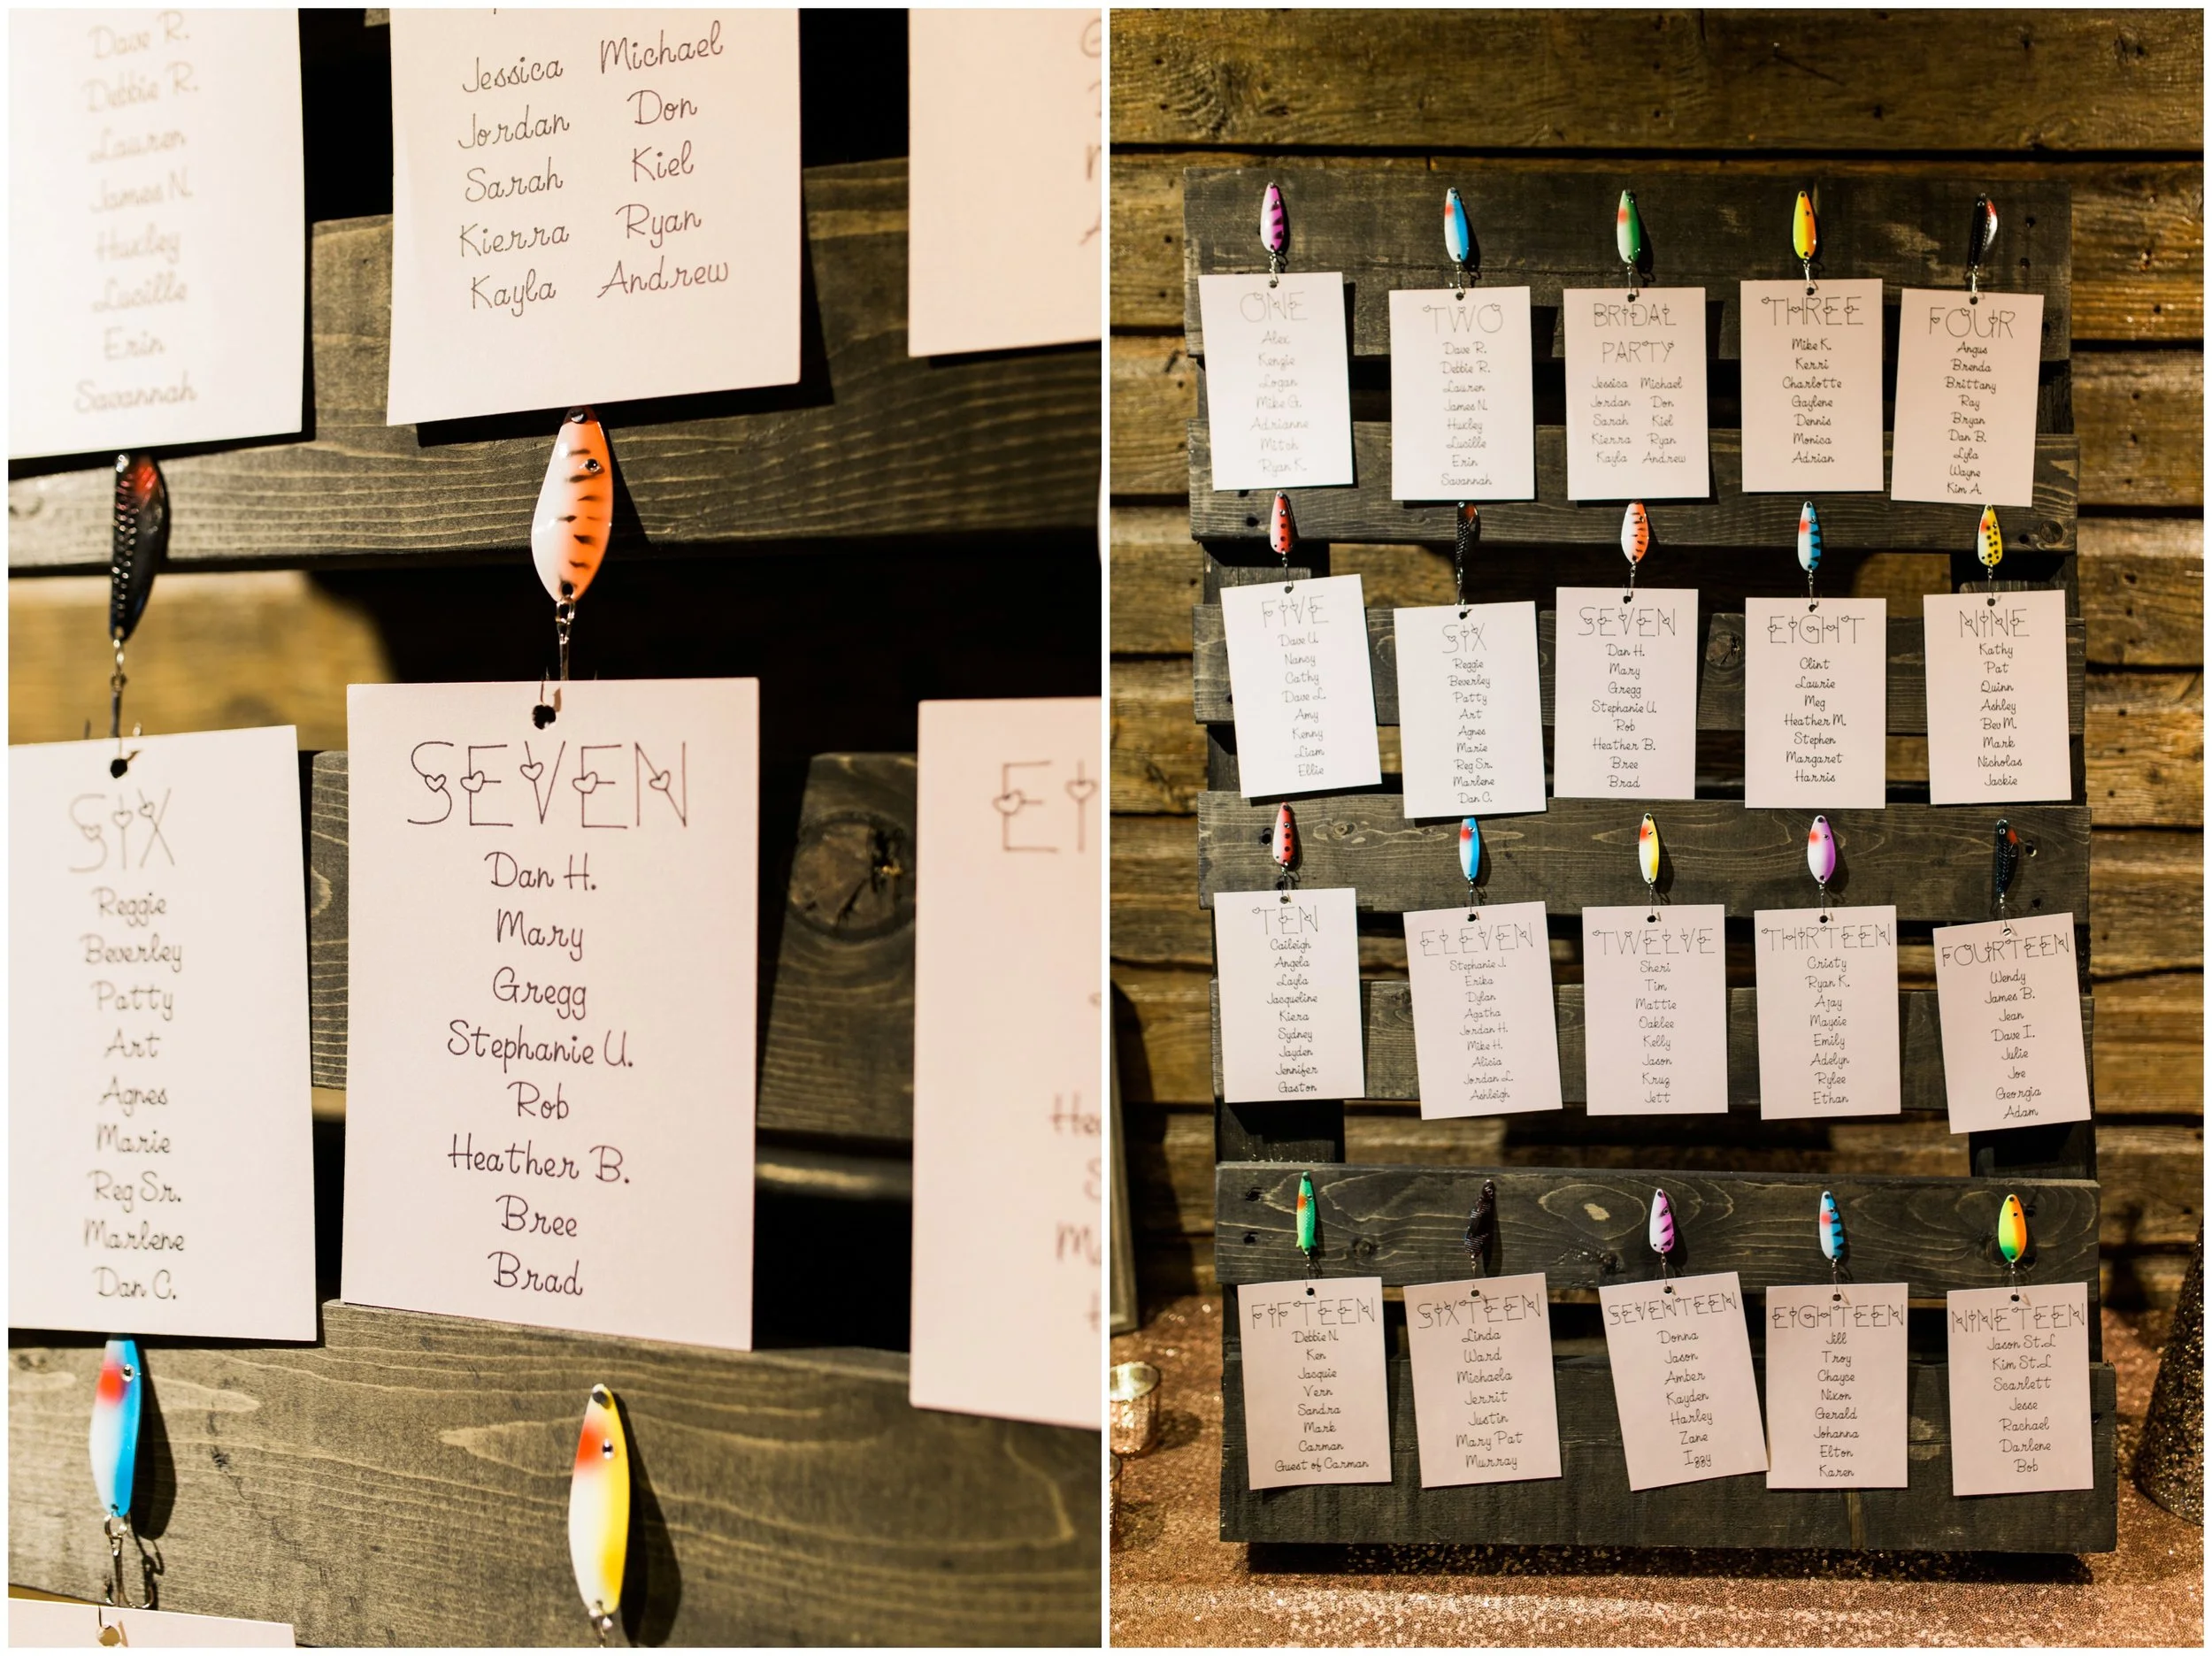 Dave R.
Debbie R.
Lauren
James N.
Huxley
Lucille
Erin
Savannah
Jessica Michael
Jordan Don
Sarah Kiel
Kierra Ryan
Kayla Andrew
SIX
Reggie
Beverley
Patty
Art
Agnes
Marie
Reg Sr.
Marlene
Dan C.
SEVEN
Dan H.
Mary
Gregg
Stephanie U.
Rob
Heather B.
Bree
Brad
ONE
Alex
Kenzie
Logan
Mike G.
Adrianne
Mitch
Ryan K.
TWO
Dave R.
Debbie R.
Lauren
James N.
Huxley
Lucille
Erin
Savannah
BRIDAL
PARTY
Jessica Michael
Jordan Don
Sarah Kiel
Kierra Ryan
Kayla Andrew
THREE
Mike K.
Kerri
Charlotte
Gaylene
Dennis
Monica
Adrian
FOUR
Angus
Brenda
Brittany
Ray
Bryan
Dan B.
Lyla
Wayne
Kim A.
FIVE
Dave U.
Nancy
Cathy
Dave L.
Amy
Kenny
Liam
Ellie
SIX
Reggie
Beverley
Patty
Art
Agnes
Marie
Reg Sr.
Marlene
Dan C.
SEVEN
Dan H.
Mary
Gregg
Stephanie U.
Rob
Heather B.
Bree
Brad
EIGHT
Clint
Laurie
Meg
Heather M.
Stephen
Margaret
Harris
NINE
Kathy
Pat
Quinn
Ashley
Bev M.
Mark
Nicholas
Jackie
TEN
Caileigh
Angela
Layla
Jacqueline
Kiera
Sydney
Jayden
Jennifer
Gaston
ELEVEN
Stephanie J.
Erika
Dylan
Agatha
Jordan H.
Mike H.
Alicia
Jordan L.
Ashleigh
TWELVE
Sheri
Tim
Mattie
Oaklee
Kelly
Jason
Kruz
Jett
THIRTEEN
Cristy
Ryan K.
Ajay
Maysie
Emily
Adelyn
Rylee
Ethan
FOURTEEN
Wendy
James B.
Jean
Dave I.
Julie
Joe
Georgia
Adam
FIFTEEN
Debbie N.
Ken
Jacquie
Vern
Sandra
Mark
Carman
Guest of Carman
SIXTEEN
Linda
Ward
Michaela
Jerrit
Justin
Mary Pat
Murray
SEVENTEEN
Donna
Jason
Amber
Kayden
Harley
Zane
Izzy
EIGHTEEN
Jill
Troy
Chayce
Nixon
Gerald
Johanna
Elton
Karen
NINETEEN
Jason St.L
Kim St.L
Scarlett
Jesse
Rachael
Darlene
Bob